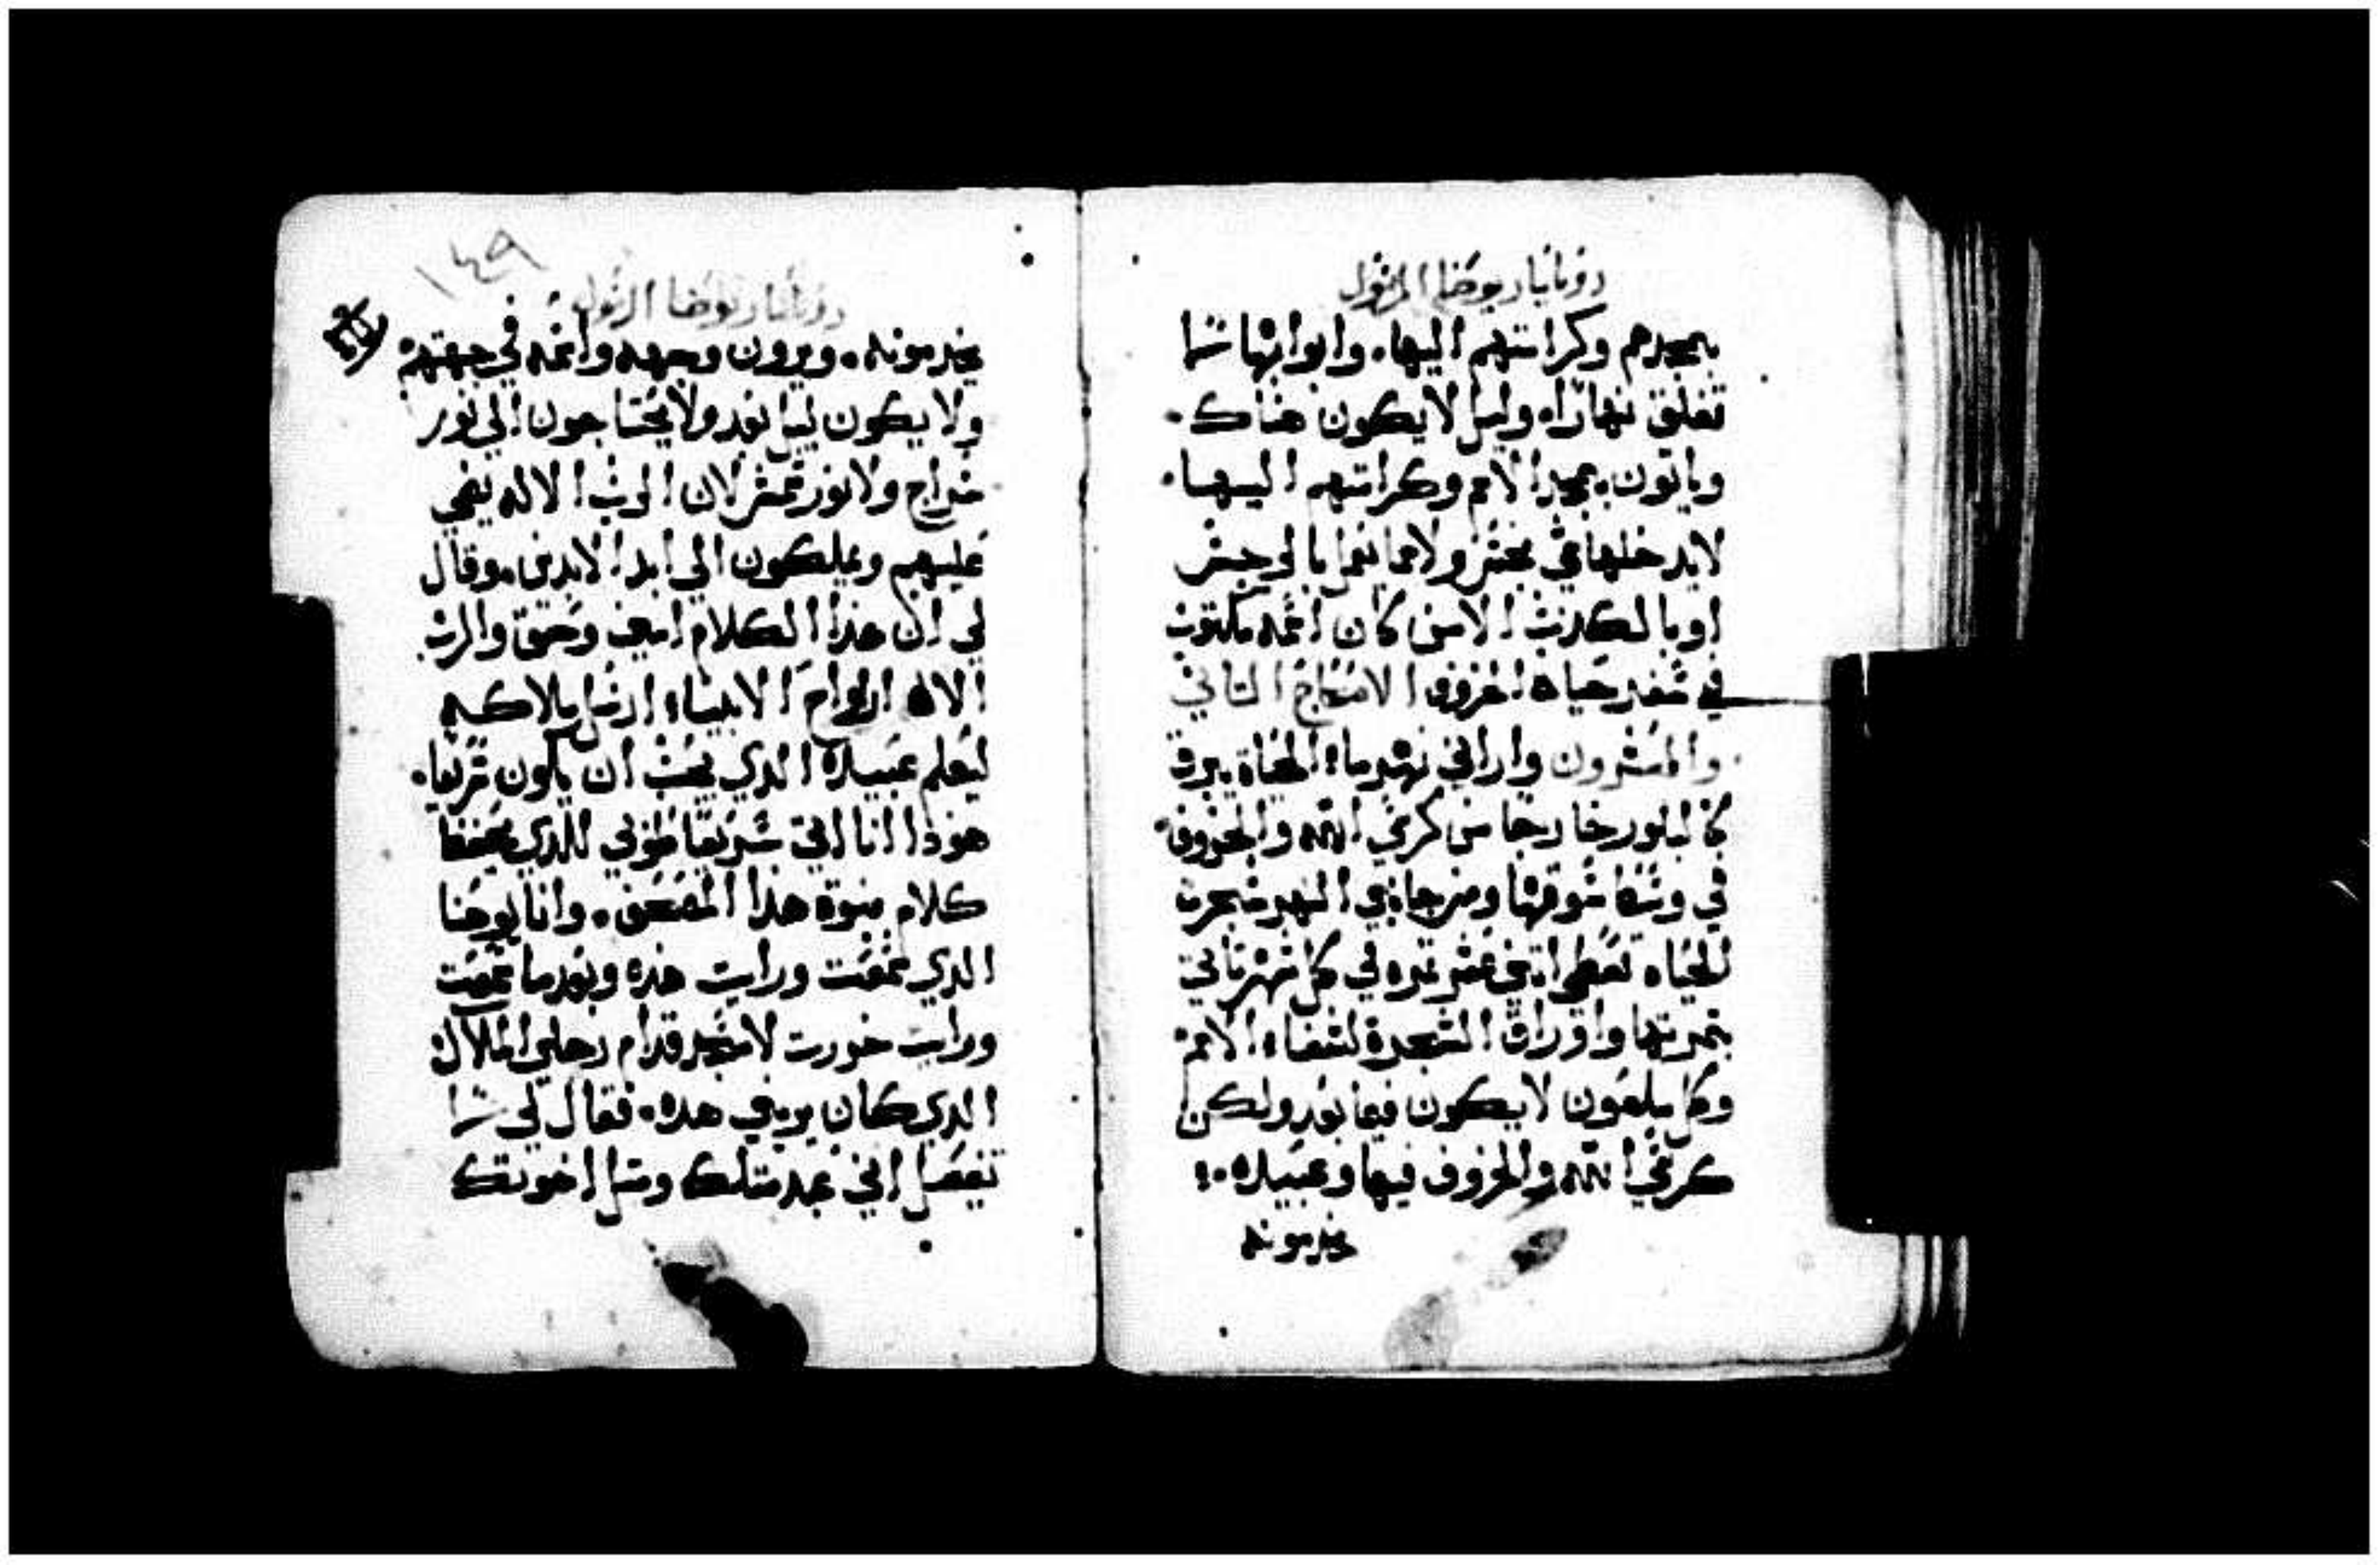 رؤيا مار يوحنا الرسول
بمجدهم وكرامتهم اليها. وابوابها لا
تغلق نهارًا. وليل لا يكون هناك.
وياتون بمجد الامم وكرامتهم اليها.
لا يدخلها نجس ولا بالرجس
او بالكدب الا من كان اسمه مكتوب
في سفر حياه الخروف الاصحاح التاني
والعشرون واراني نهر ماء الحياة يبرق
كالبلور خارجا من كرسي الله والخروف.
في وسط سوقها ومن جانبي النهر شجرت
للحياه تعطي اتني عشر تمره في كل شهر تاتي
بتمرتها واوراق الشجرة لشفاء الامم
وكل ملعون لا يكون فيما بعد ولكن
كرسي الله والخروف فيها وعبيده
يخدمونه
١٤٩
رؤيا مار يوحنا الرسول
يخدمونه. ويرون وجهه واسمه في جبهتهم
ولا يكون ليل بعد ولا يحتاجون الي نور
سراج ولا نور شمس لان الرب الاله يضي
عليهم ويملكون الي ابد الابدين. وقال
لي ان هدا الكلام امين وحق والرب
الاله ارواح الانبياء ارسل ملاكه
ليعلم عبيده الدي يجب ان يكون سريعا.
هودا انا اتي سريعا طوبي للدي يحفظ
كلام نبوة هدا المصحف. وانا يوحنا
الدي سمعت ورايت هده وبعد ما سمعت
ورايت خررت لاسجد قدام رجلي الملاك
الدي كان يريني هده. فقال لي لا
تفعل اني عبد متلك ومتل اخوتك